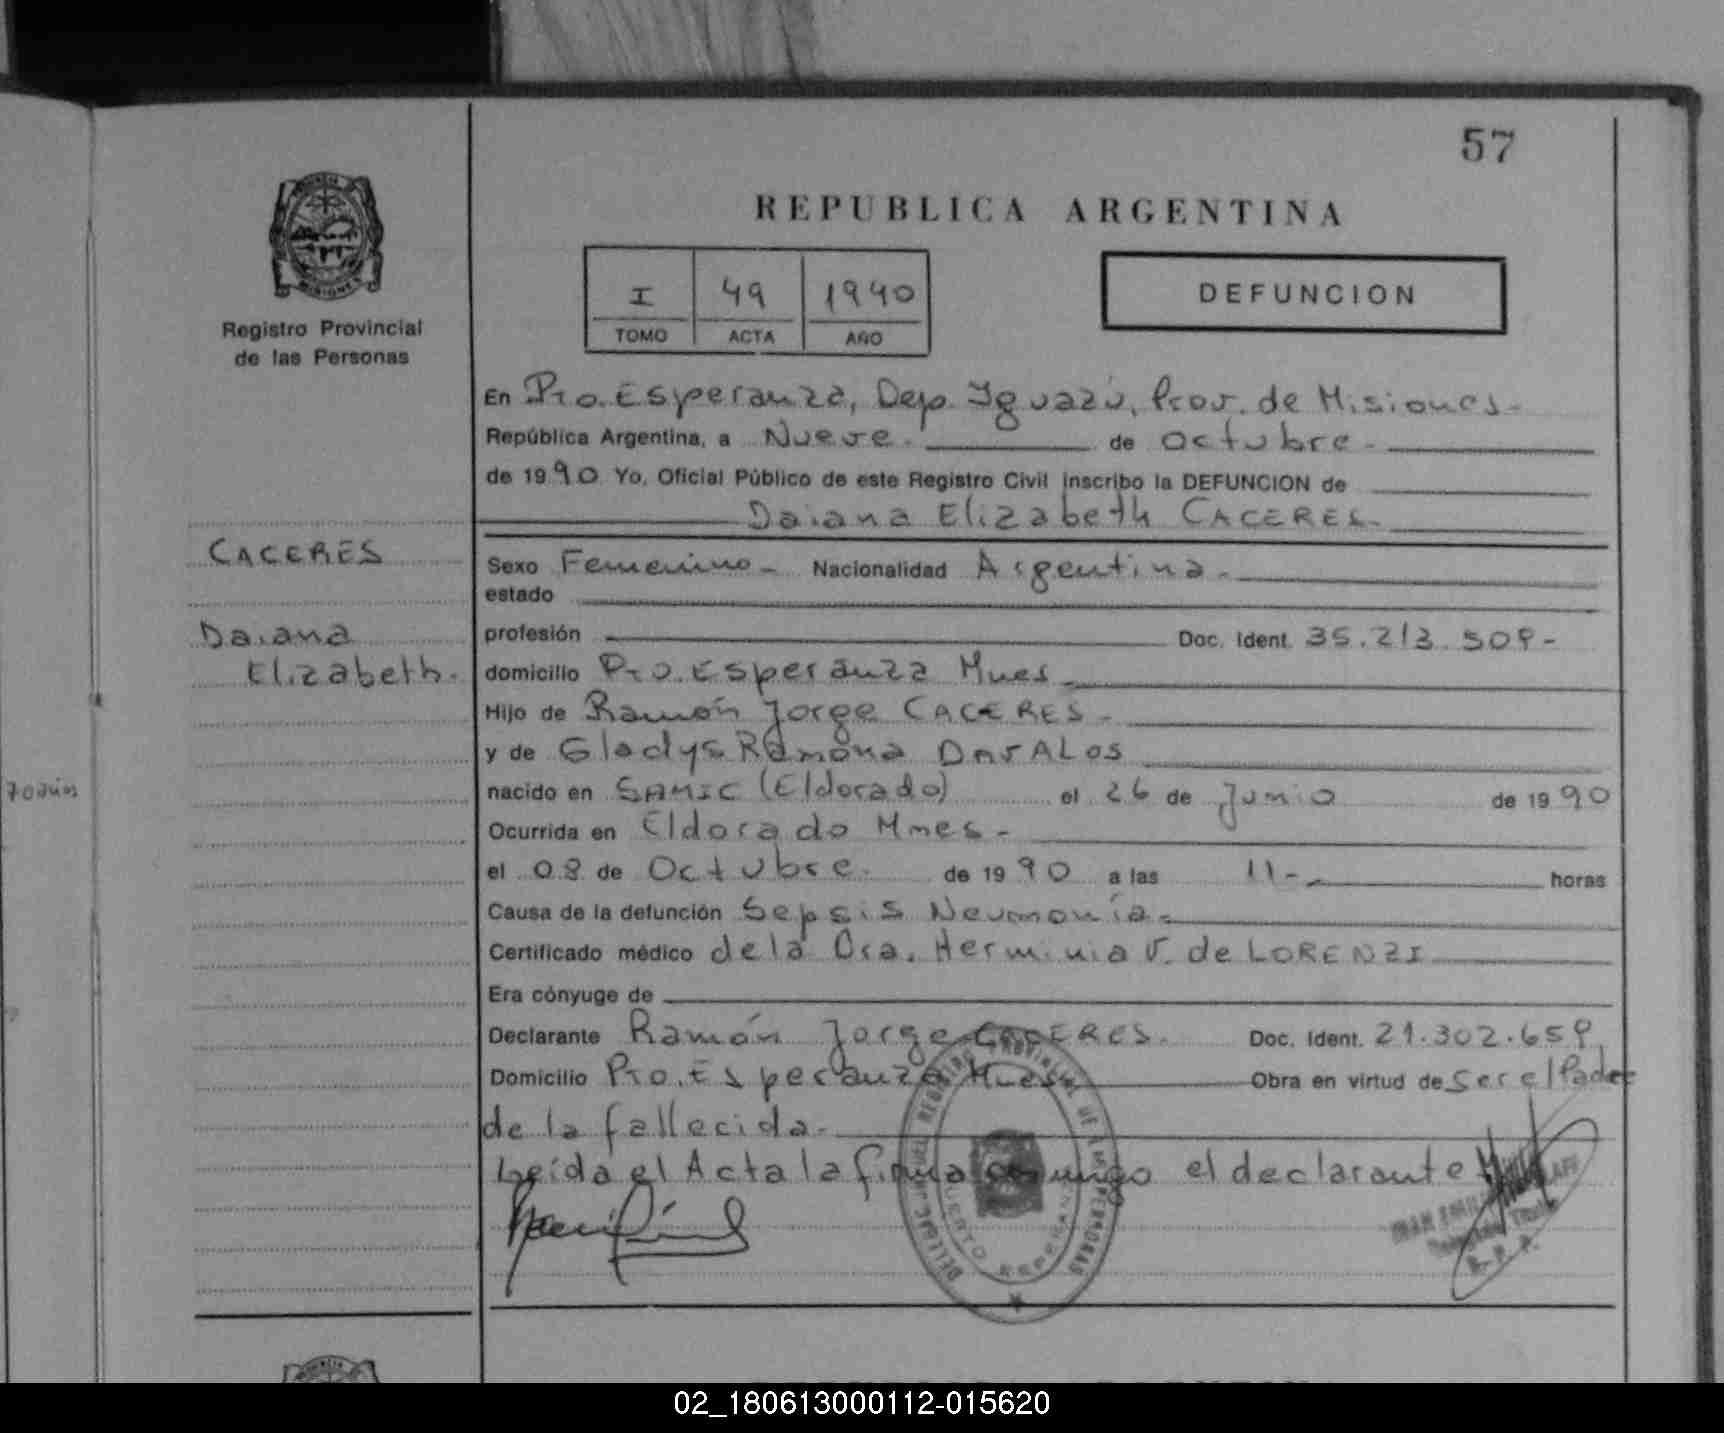 57
REPUBLICA ARGENTINA
I 49 1990
TOMO ACTA AÑO
DEFUNCION
MISIONES
Registro Provincial
de las Personas
En Pto. Esperanza, Dep. Iguazú, Prov. de Misiones.-
República Argentina, a Nueve. de Octubre.-
de 1990 Yo, Oficial Público de este Registro Civil inscribo la DEFUNCION de
Daiana Elizabeth CACERES.-
CACERES
Daiana
Elizabeth.
Sexo Femenino- Nacionalidad Argentina.-
estado
profesión Doc. Ident. 35.213.509-
domicilio Pto. Esperanza Mnes.-
Hijo de Ramón Jorge CACERES.-
y de Gladys Ramona DAVALOS
nacido en SAMIC (Eldorado) el 26 de Junio de 1990
Ocurrida en Eldorado Mnes.-
el 08 de Octubre. de 1990 a las 11-. horas
Causa de la defunción Sepsis Neumonía.-
Certificado médico de la Dra. Herminia V. de LORENZI
Era cónyuge de
Declarante Ramón Jorge CACERES. Doc. Ident. 21.302.659
Domicilio Pto. Esperanza Mnes. Obra en virtud de ser el Padre
de la fallecida.-
Leída el Acta la firma conmigo el declarante
REGISTRO PROVINCIAL DE LAS PERSONAS
PUERTO ESPERANZA
02_180613000112-015620